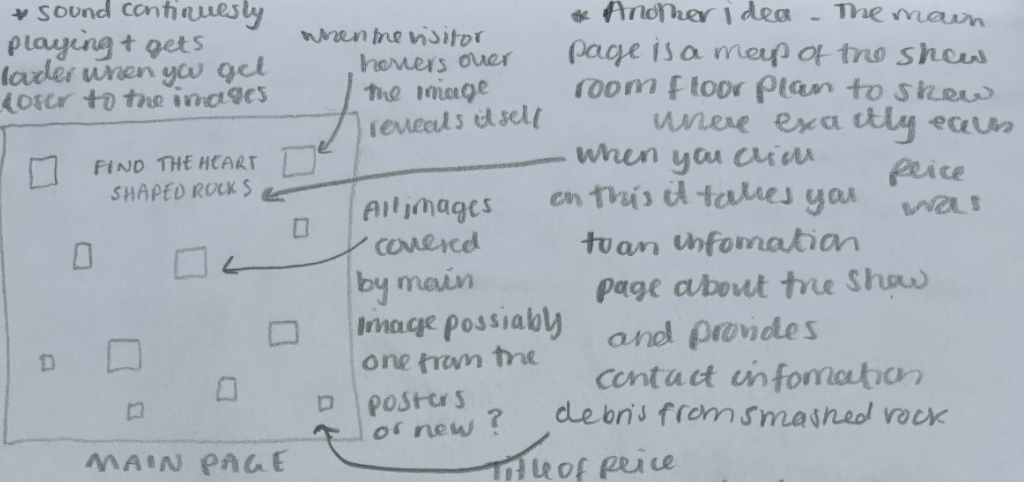 * sound continuesly
playing + gets
louder when you get
closer to the images
when the visitor
hovers over
the image
reveals itself
* Another idea - The main
page is a map of the show
room floor plan to show
where exactly each
peice
was
FIND THE HEART
SHAPED ROCKS
when you click
on this it takes you
to an infomation
page about the show
and provides
contact infomation
All images
covered
by main
image possiably
one from the
posters
or new?
debris from smashed rock
Title of peice
MAIN PAGE